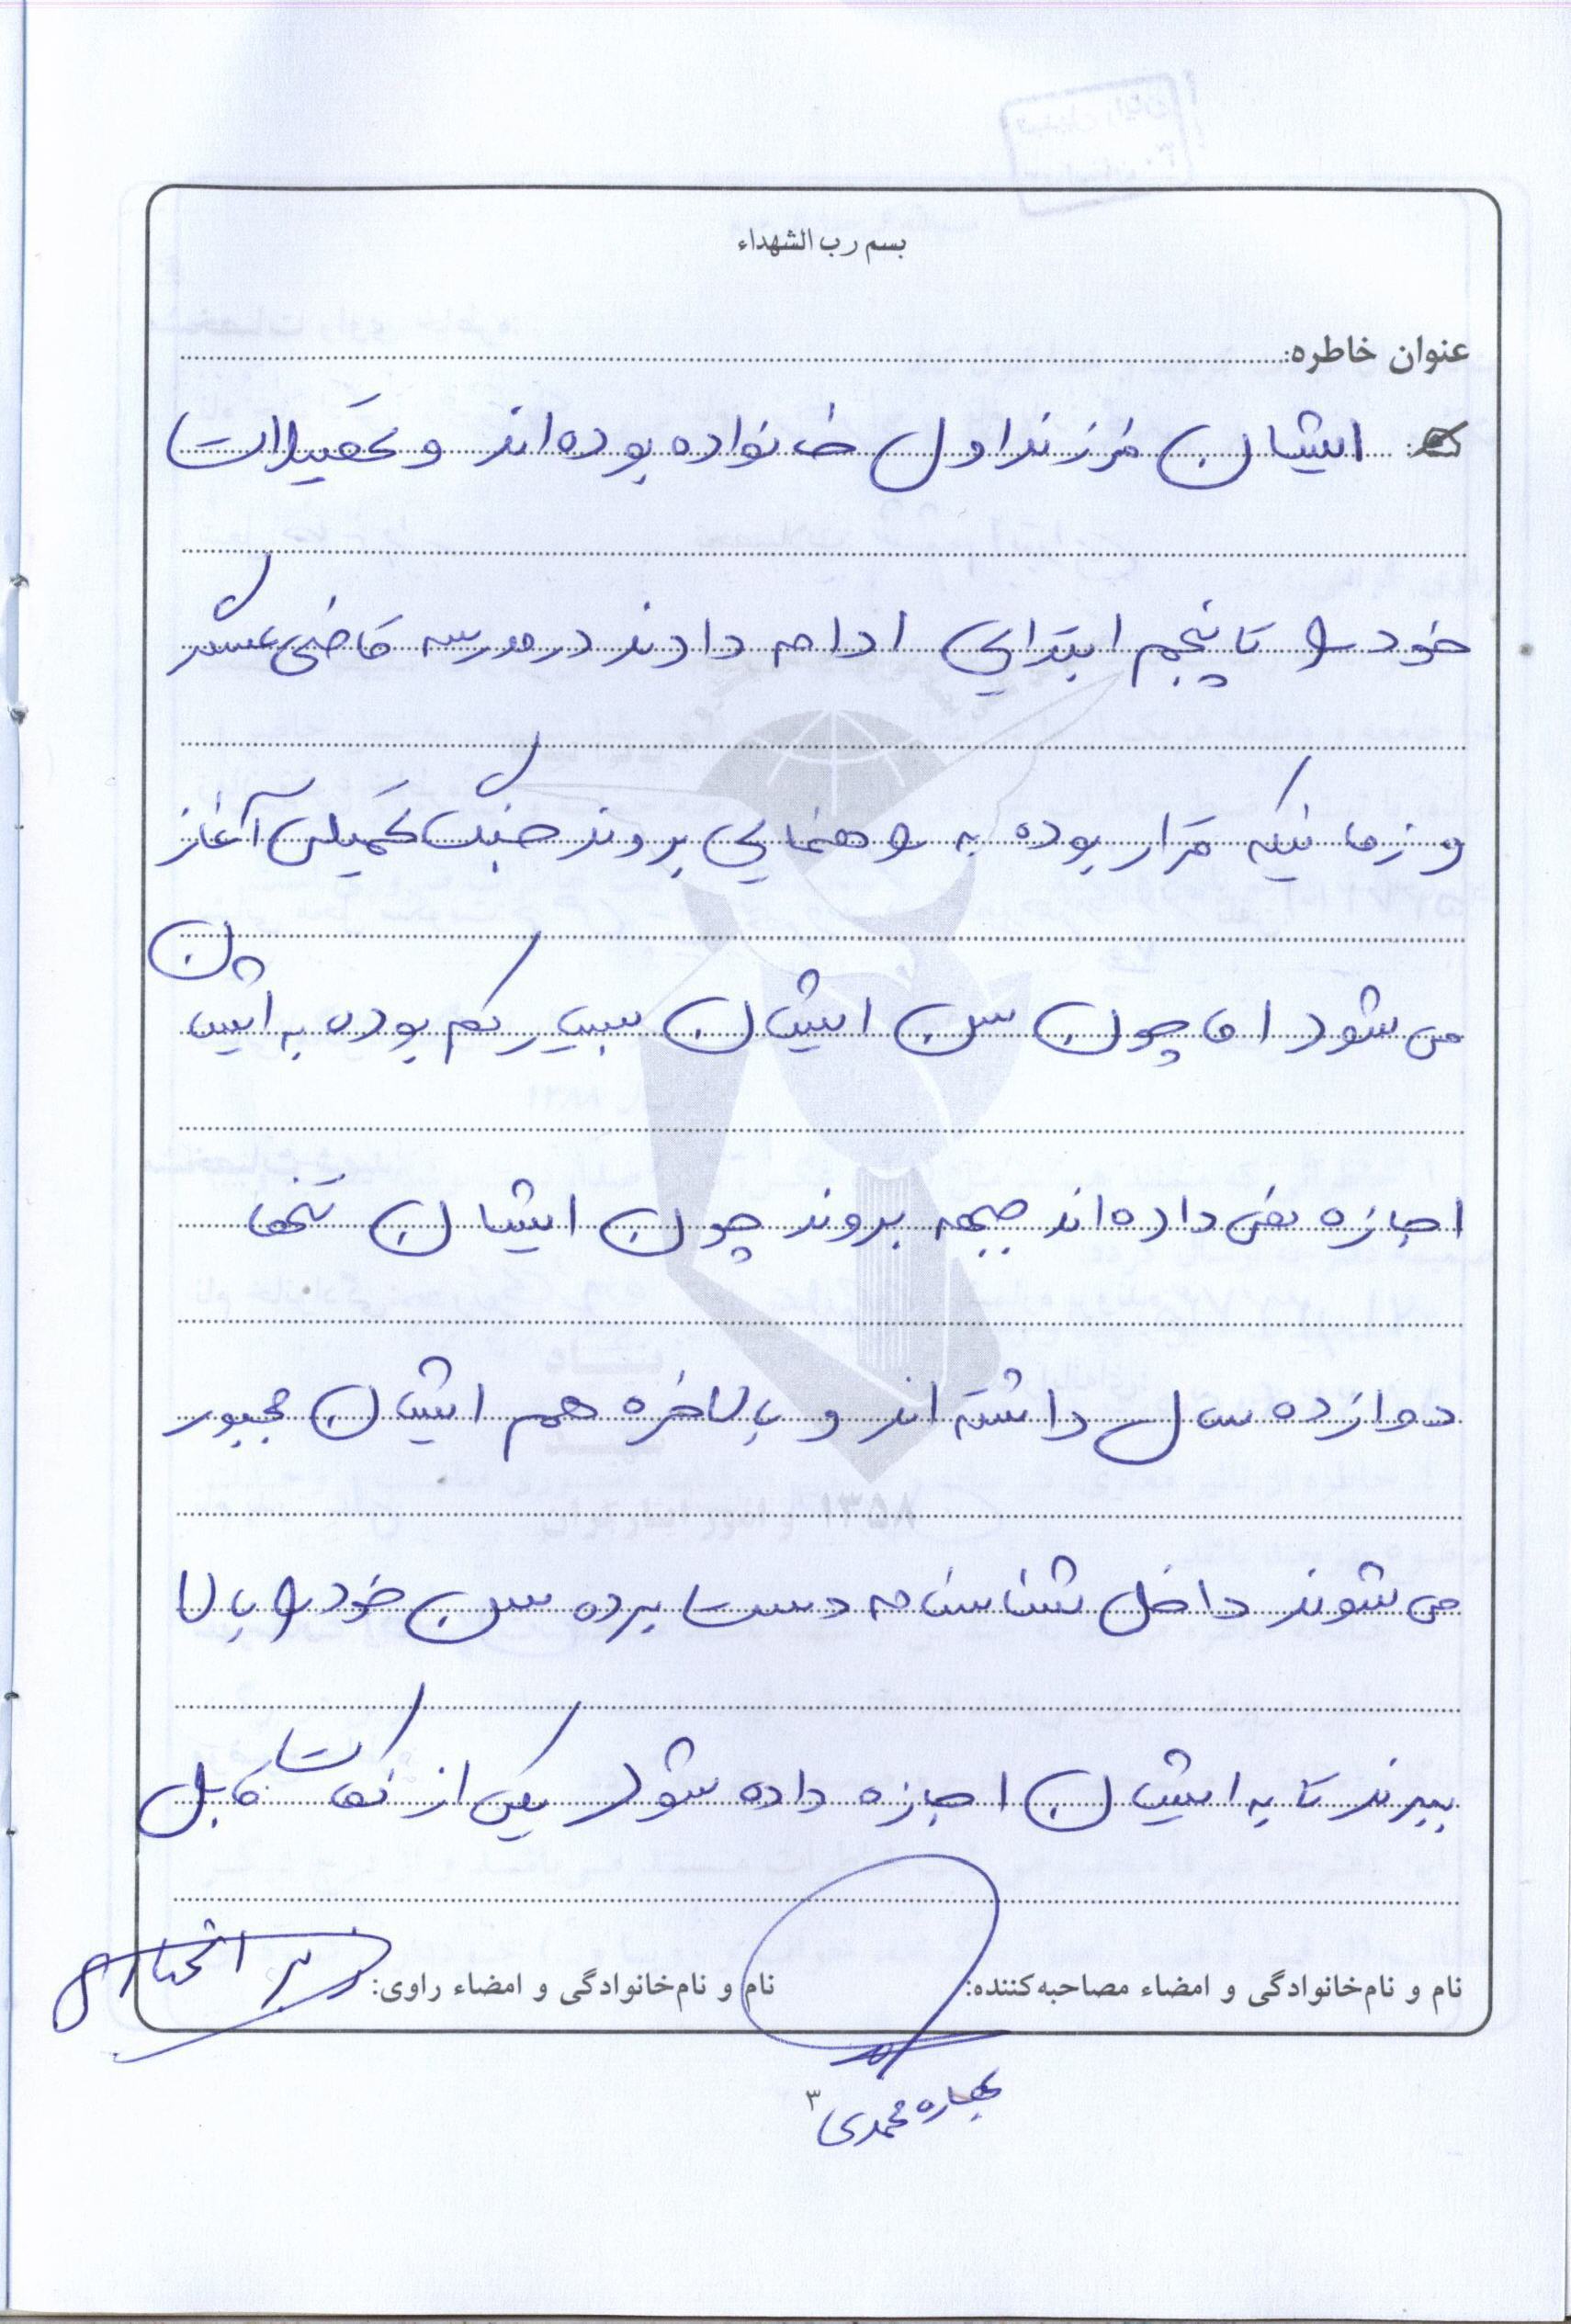 بسم رب الشهداء
عنوان خاطره:
ایشان فرزند اول خانواده بوده‌اند و تحصیلات
خود را تا پنجم ابتدایی ادامه دادند در مدرسه قاضی عسگر
و زمانیکه قرار بوده به راهنمایی بروند جنگ تحمیلی آغاز
می شود اما چون سن ایشان بسیار کم بوده به ایشان
اجازه نمی داده‌اند جبهه بروند چون ایشان تنها
دوازده سال داشته‌اند و بالاخره هم ایشان مجبور
می شوند داخل شناسنامه دست برده سن خود را بالا
ببرند تا به ایشان اجازه داده شود یکی از نکات قابل
نام و نام‌خانوادگی و امضاء مصاحبه‌کننده:
نام و نام‌خانوادگی و امضاء راوی:
بهاره محمدی
۳
۱۳۵۸